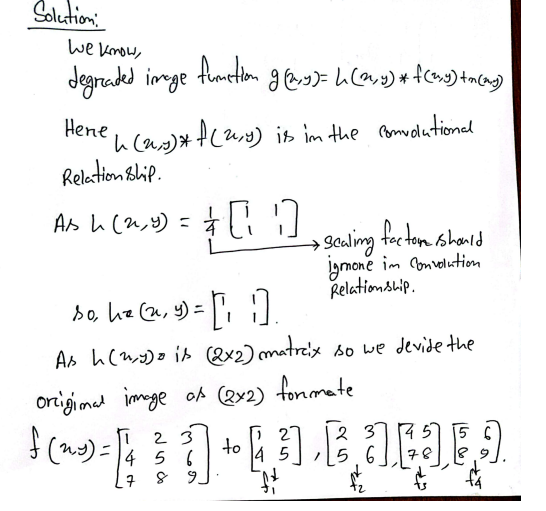 Solution:
We know,
degraded image function g(x,y)= h(x,y) * f(x,y)+n(x,y)
Here h(x,y)* f(x,y) is in the convolutional
Relationship.
As h(x,y) = 1/4 [1 1; 1 1]
→ scaling factor should
ignore in convolution
Relationship.
so, he(x,y) = [1 1; 1 1].
As h(x,y) is (2x2) matrix so we devide the
original image as (2x2) formate
f(x,y) = [1 2 3; 4 5 6; 7 8 9] to [1 2; 4 5], [2 3; 5 6], [4 5; 7 8], [5 6; 8 9].
f1 f2 f3 f4